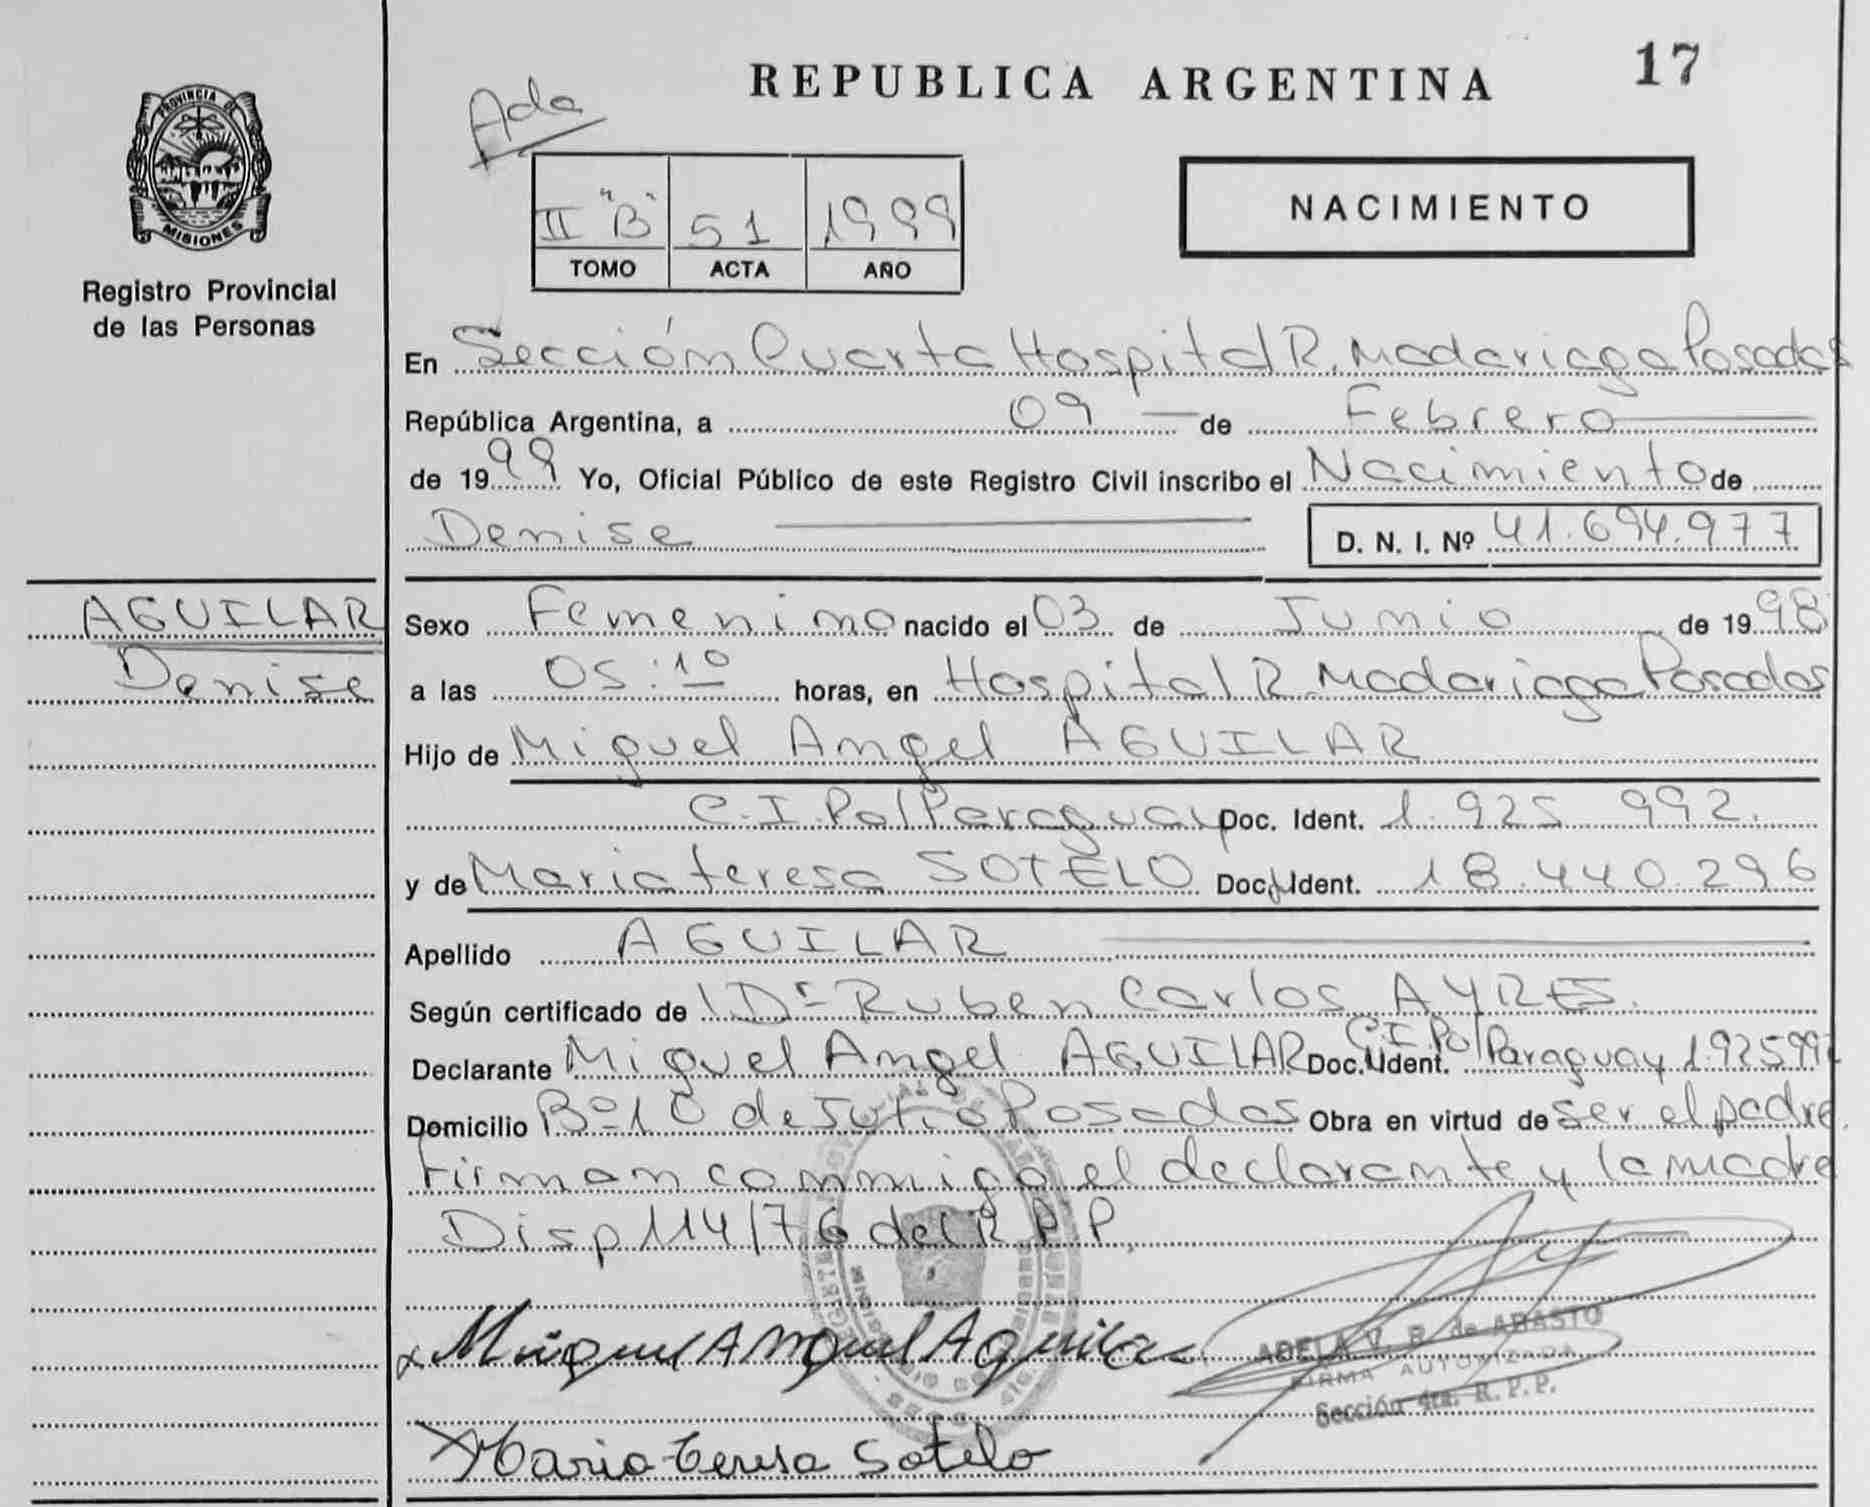 PROVINCIA DE
MISIONES
Registro Provincial
de las Personas
REPUBLICA ARGENTINA
17
Ada
II "B" 51 1999
TOMO ACTA AÑO
NACIMIENTO
En Sección Cuarta Hospital R. Madariaga Posadas
República Argentina, a 09 de Febrero
de 1999 Yo, Oficial Público de este Registro Civil inscribo el Nacimiento de
Denise D. N. I. Nº 41.694.977
AGUILAR
Denise
Sexo Femenino nacido el 03 de Junio de 1998
a las 05:10 horas, en Hospital R. Madariaga Posadas
Hijo de Miguel Angel AGUILAR
C.I. Pol Paraguay Doc. Ident. 1.925 992.
y de Maria teresa SOTELO Doc. Ident. 18.440.296
Apellido AGUILAR
Según certificado de Dr Ruben Carlos AYRES.
Declarante Miguel Angel AGUILAR Doc. Ident. C.I. Pol Paraguay 1.925992
Domicilio Bº 10 de Posadas Obra en virtud de ser el padre.
Firman conmigo el declarante y la madre
Disp 114/76 del R P P.
Miguel Angel Aguilar
ADELA V. R. de ABASTO
FIRMA AUTORIZADA
Sección 4ta. R.P.P.
Maria teresa Sotelo